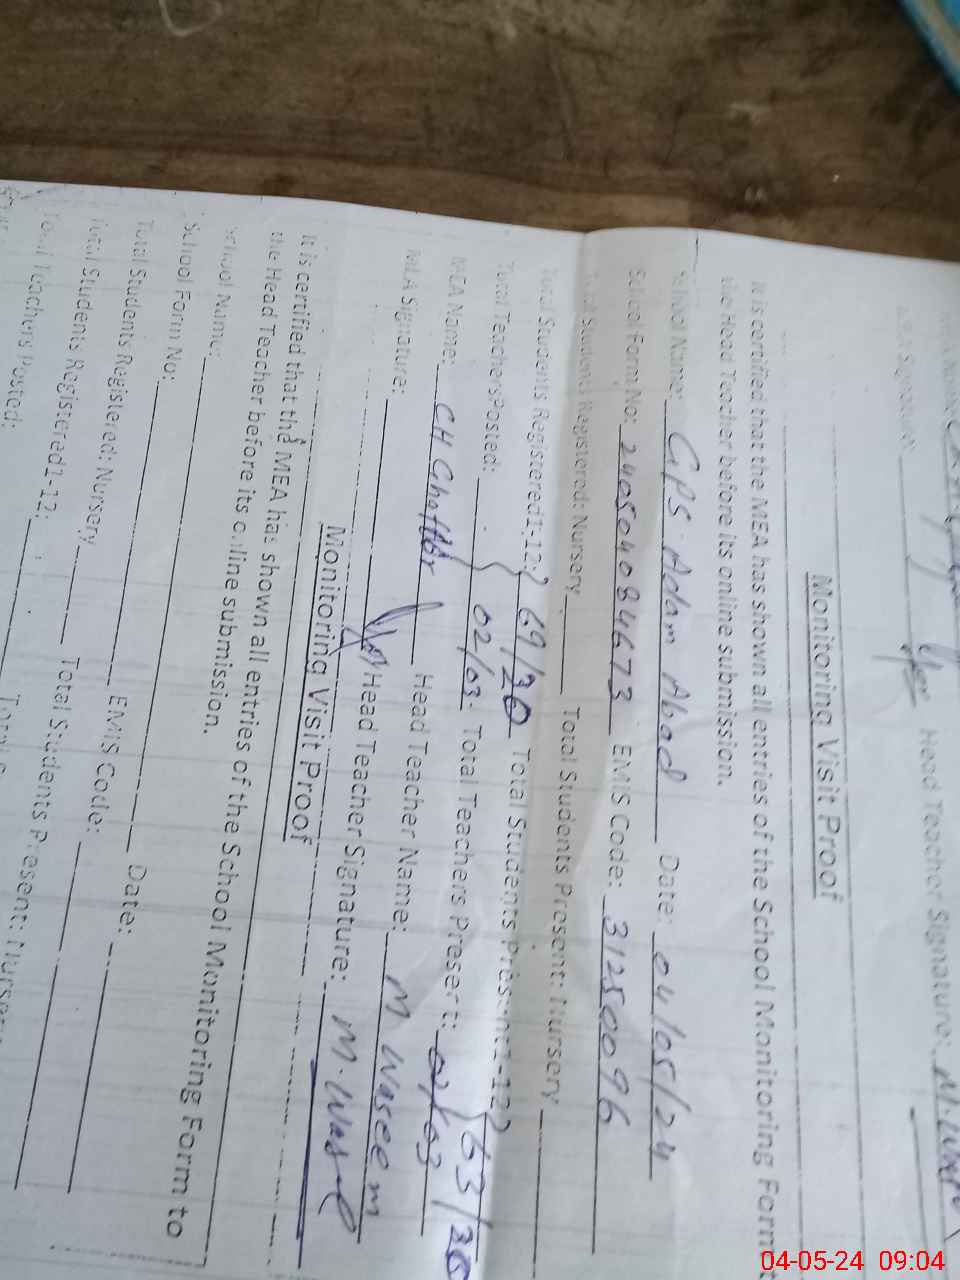 Head Teacher Signature:
Monitoring Visit Proof
It is certified that the MEA has shown all entries of the School Monitoring Form
the Head Teacher before its online submission.
School Name: GPS Adam Abad Date: 04/05/24
School Form No: 24050408 4673 EMIS Code: 31250096
Total Student Registered: Nursery Total Students Present: Nursery
Total Students Registered1-12: 69/30 Total Students Present1-12 63/30
Total TeachersPosted: 02/03 Total Teachers Present: 02/03
MEA Name: CH Ghaffar Head Teacher Name: M Waseem
MEA Signature: Head Teacher Signature: M. Wasel
Monitoring Visit Proof
It is certified that the MEA has shown all entries of the School Monitoring Form to
the Head Teacher before its online submission.
School Name: Date:
School Form No: EMIS Code:
Total Students Registered: Nursery Total Students Present: Nursery
Total Students Registered1-12:
Total Teachers Posted:
04-05-24 09:04